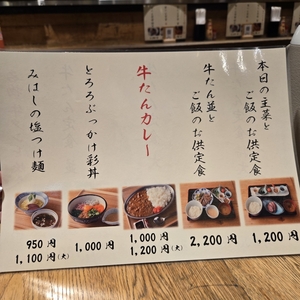 本日の主菜と
ご飯のお供定食
1,200 円
牛たん並と
ご飯のお供定食
2,200 円
牛たんカレー
1,000 円
1,200 円(大)
とろろぶっかけ彩丼
1,000 円
みはしの塩つけ麺
950 円
1,100 円(大)